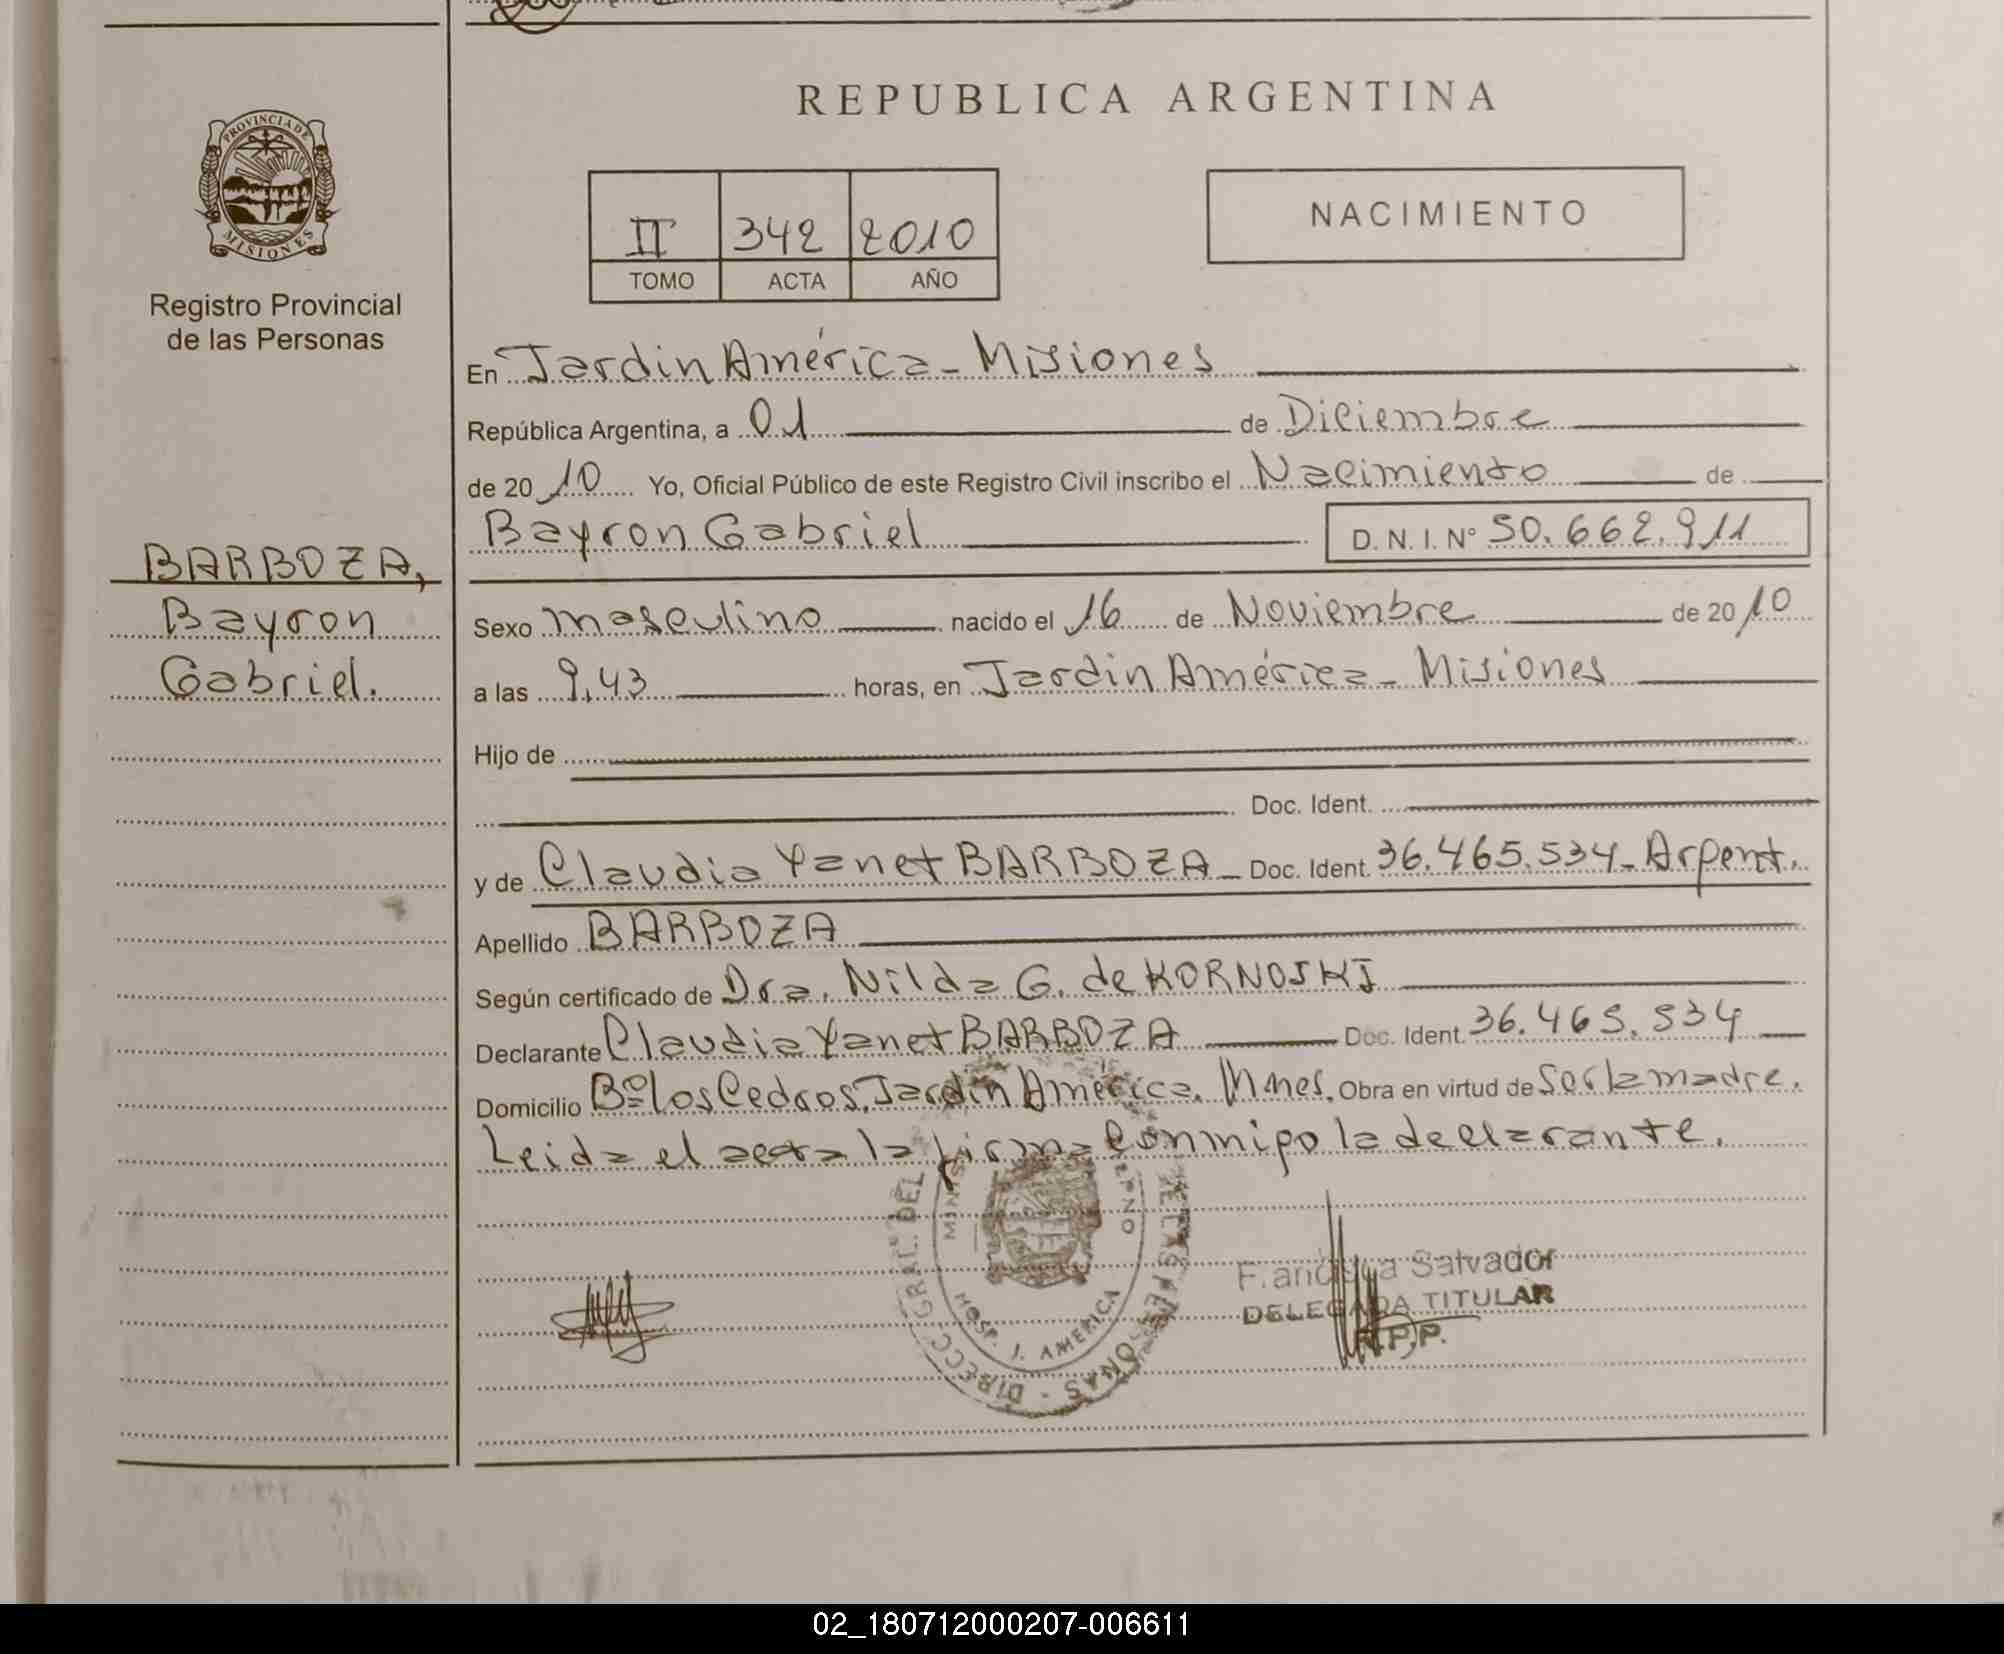 REPUBLICA ARGENTINA
PROVINCIA DE
MISIONES
Registro Provincial
de las Personas
II 342 2010
TOMO ACTA AÑO
NACIMIENTO
BARBOZA,
Bayron
Gabriel.
En Jardin América - Misiones
República Argentina, a 01 de Diciembre
de 2010 Yo, Oficial Público de este Registro Civil inscribo el Nacimiento de
Bayron Gabriel D.N.I. Nº 50.662.911
Sexo masculino nacido el 16 de Noviembre de 2010
a las 9,43 horas, en Jardin América - Misiones
Hijo de
Doc. Ident.
y de Claudia Yanet BARBOZA - Doc. Ident. 36.465.534 - Argent.
Apellido BARBOZA
Según certificado de Dra. Nilda G. de KORNOSKI
Declarante Claudia Yanet BARBOZA Doc. Ident. 36.465.534
Domicilio Bº los Cedros, Jardin América, Mnes. Obra en virtud de Ser la madre.
Leida el acta la firma conmigo la declarante.
DIRECC. GRAL. DEL
HOSP. J. AMERICA
Salvador
DELEGADA TITULAR
R.P.P.
02_180712000207-006611